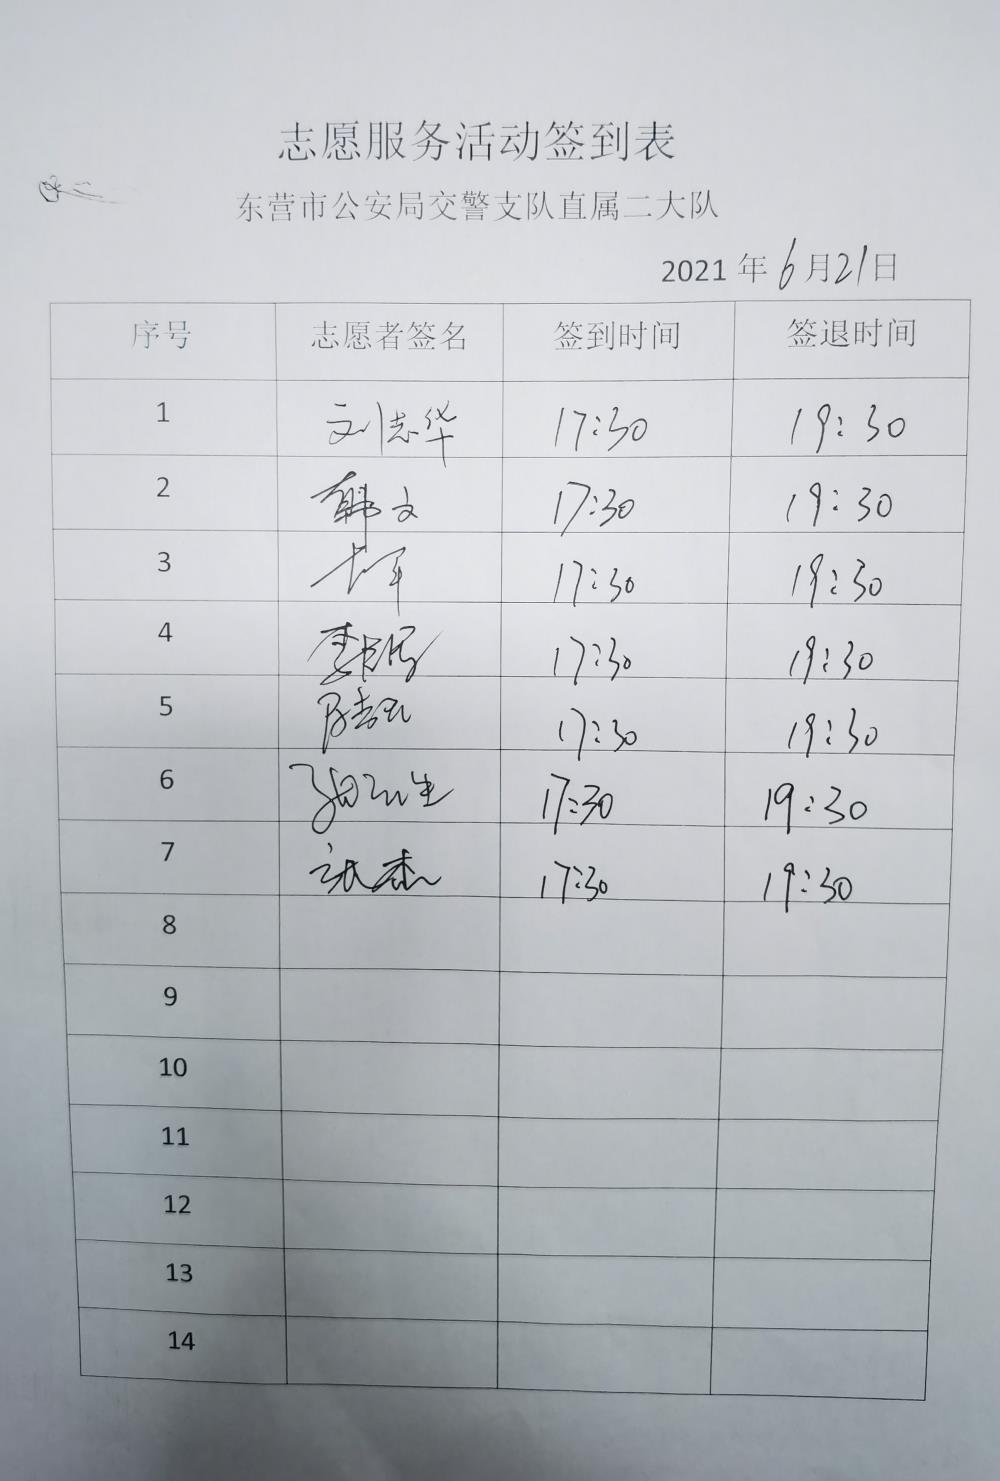 志愿服务活动签到表
东营市公安局交警支队直属二大队
2021 年 6 月 21 日
序号 志愿者签名 签到时间 签退时间
1 刘志华 17:30 19:30
2 韩文 17:30 19:30
3 17:30 19:30
4 17:30 19:30
5 17:30 19:30
6 17:30 19:30
7 17:30 19:30
8
9
10
11
12
13
14